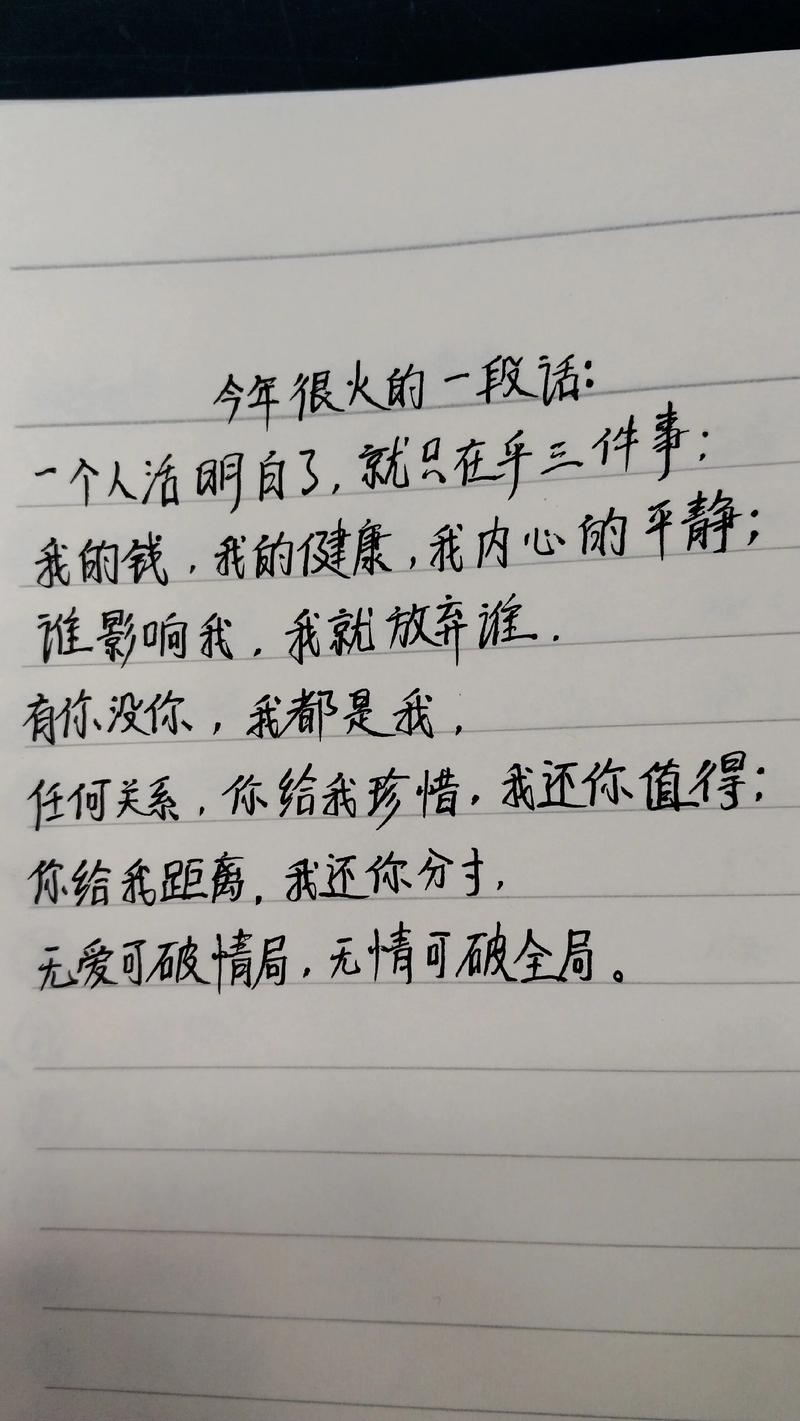 今年很火的一段话:
一个人活明白了,就只在乎三件事;
我的钱,我的健康,我内心的平静;
谁影响我,我就放弃谁.
有你没你,我都是我,
任何关系,你给我珍惜,我还你值得;
你给我距离,我还你分寸,
无爱可破情局,无情可破全局。